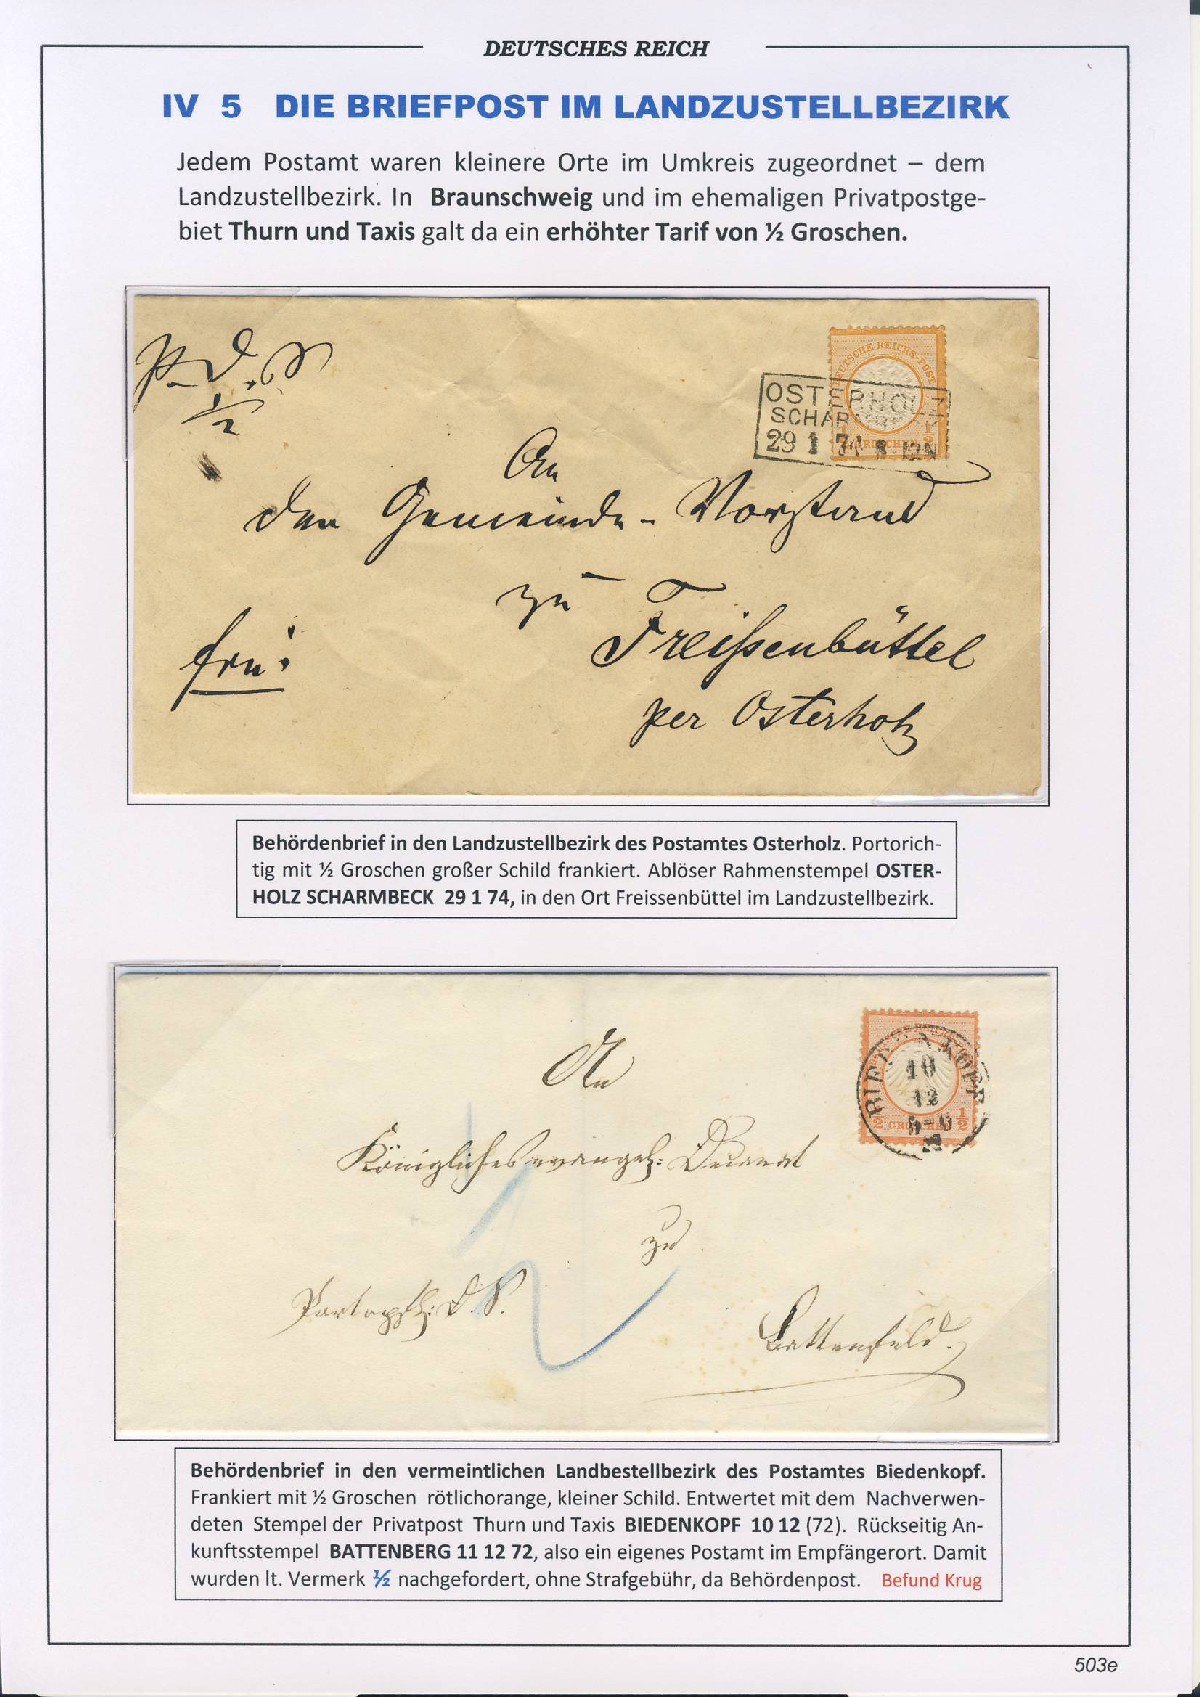 DEUTSCHES REICH
IV 5 DIE BRIEFPOST IM LANDZUSTELLBEZIRK
Jedem Postamt waren kleinere Orte im Umkreis zugeordnet – dem
Landzustellbezirk. In Braunschweig und im ehemaligen Privatpostge-
biet Thurn und Taxis galt da ein erhöhter Tarif von ½ Groschen.
p. D. S
1/2
DEUTSCHE REICHS-POST
OSTERHOLZ
SCHARMBECK
29 1 74 8-12N
An
den Gemeinde-Vorstand
zu
Freißenbüttel
per Osterholz
frei.
Behördenbrief in den Landzustellbezirk des Postamtes Osterholz. Portorich-
tig mit ½ Groschen großer Schild frankiert. Ablöser Rahmenstempel OSTER-
HOLZ SCHARMBECK 29 1 74, in den Ort Freissenbüttel im Landzustellbezirk.
BIEDENKOPF
10
12
5-6
½ GROSCHEN ½
An
Königliches evangel: Decanat
zu
Battenfeld.
Portopfl: D. S.
1/2
Behördenbrief in den vermeintlichen Landbestellbezirk des Postamtes Biedenkopf.
Frankiert mit ½ Groschen rötlichorange, kleiner Schild. Entwertet mit dem Nachverwen-
deten Stempel der Privatpost Thurn und Taxis BIEDENKOPF 10 12 (72). Rückseitig An-
kunftsstempel BATTENBERG 11 12 72, also ein eigenes Postamt im Empfängerort. Damit
wurden lt. Vermerk ½ nachgefordert, ohne Strafgebühr, da Behördenpost. Befund Krug
503e